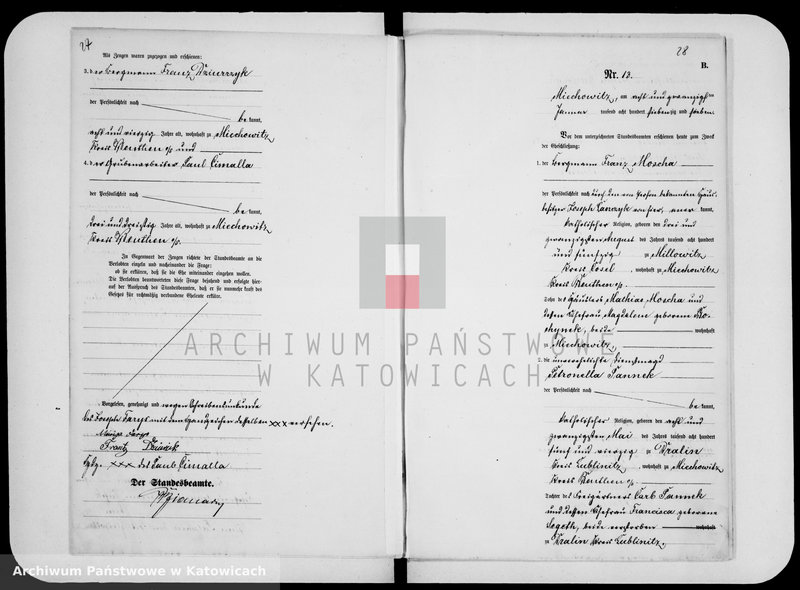 27
Als Zeugen waren zugezogen und erschienen:
3. der Bergmann Franz Dziurrzyk
der Persönlichkeit nach
be kannt,
acht und vierzig Jahre alt, wohnhaft zu Miechowitz
Kreis Beuthen o/s und
4. der Grubenarbeiter Paul Cimalla
der Persönlichkeit nach
be kannt,
drei und dreißig Jahre alt, wohnhaft zu Miechowitz
Kreis Beuthen o/s.
In Gegenwart der Zeugen richtete der Standesbeamte an die
Verlobten einzeln und nacheinander die Frage:
ob sie erklären, daß sie die Ehe miteinander eingehen wollen.
Die Verlobten beantworteten diese Frage bejahend und erfolgte hier-
auf der Ausspruch des Standesbeamten, daß er sie nunmehr kraft des
Gesetzes für rechtmäßig verbundene Eheleute erkläre.
Vorgelesen, genehmigt und wegen Schreibensunkunde
des Joseph mit dem Handzeichen desselben xxx versehen.
Frantz
xxx des Paul Cimalla
Der Standesbeamte.
28
B.
Nr. 13.
Miechowitz, am acht und zwanzigsten
Januar tausend acht hundert siebenzig und sieben.
Vor dem unterzeichneten Standesbeamten erschienen heute zum Zweck
der Eheschließung:
1. der Bergmann Franz Moscha
der Persönlichkeit nach durch den von Person bekannten Haus-
besitzer Joseph von hier, aner kannt,
katholischer Religion, geboren den drei und
zwanzigsten August des Jahres tausend acht hundert
und fünfzig zu Millowitz
Kreis Kosel, wohnhaft zu Miechowitz
Kreis Beuthen o/s.
Sohn des Häuslers Mathias Moscha und
dessen Ehefrau Magdalene geborene
beide wohnhaft
zu Miechowitz,
2. die unverehelichte Dienstmagd
Petronella Jannek
der Persönlichkeit nach
be kannt,
katholischer Religion, geboren den acht und
zwanzigsten Mai des Jahres tausend acht hundert
fünf und vierzig zu Dralin
Kreis Lublinitz, wohnhaft zu Miechowitz
Kreis Beuthen o/s.
Tochter des Freigärtners Carl Jannek
und dessen Ehefrau Francisca geborene
beide verstorben wohnhaft
zu Dralin Kreis Lublinitz.
ARCHIWUM PAŃSTWOWE
W KATOWICACH
Archiwum Państwowe w Katowicach